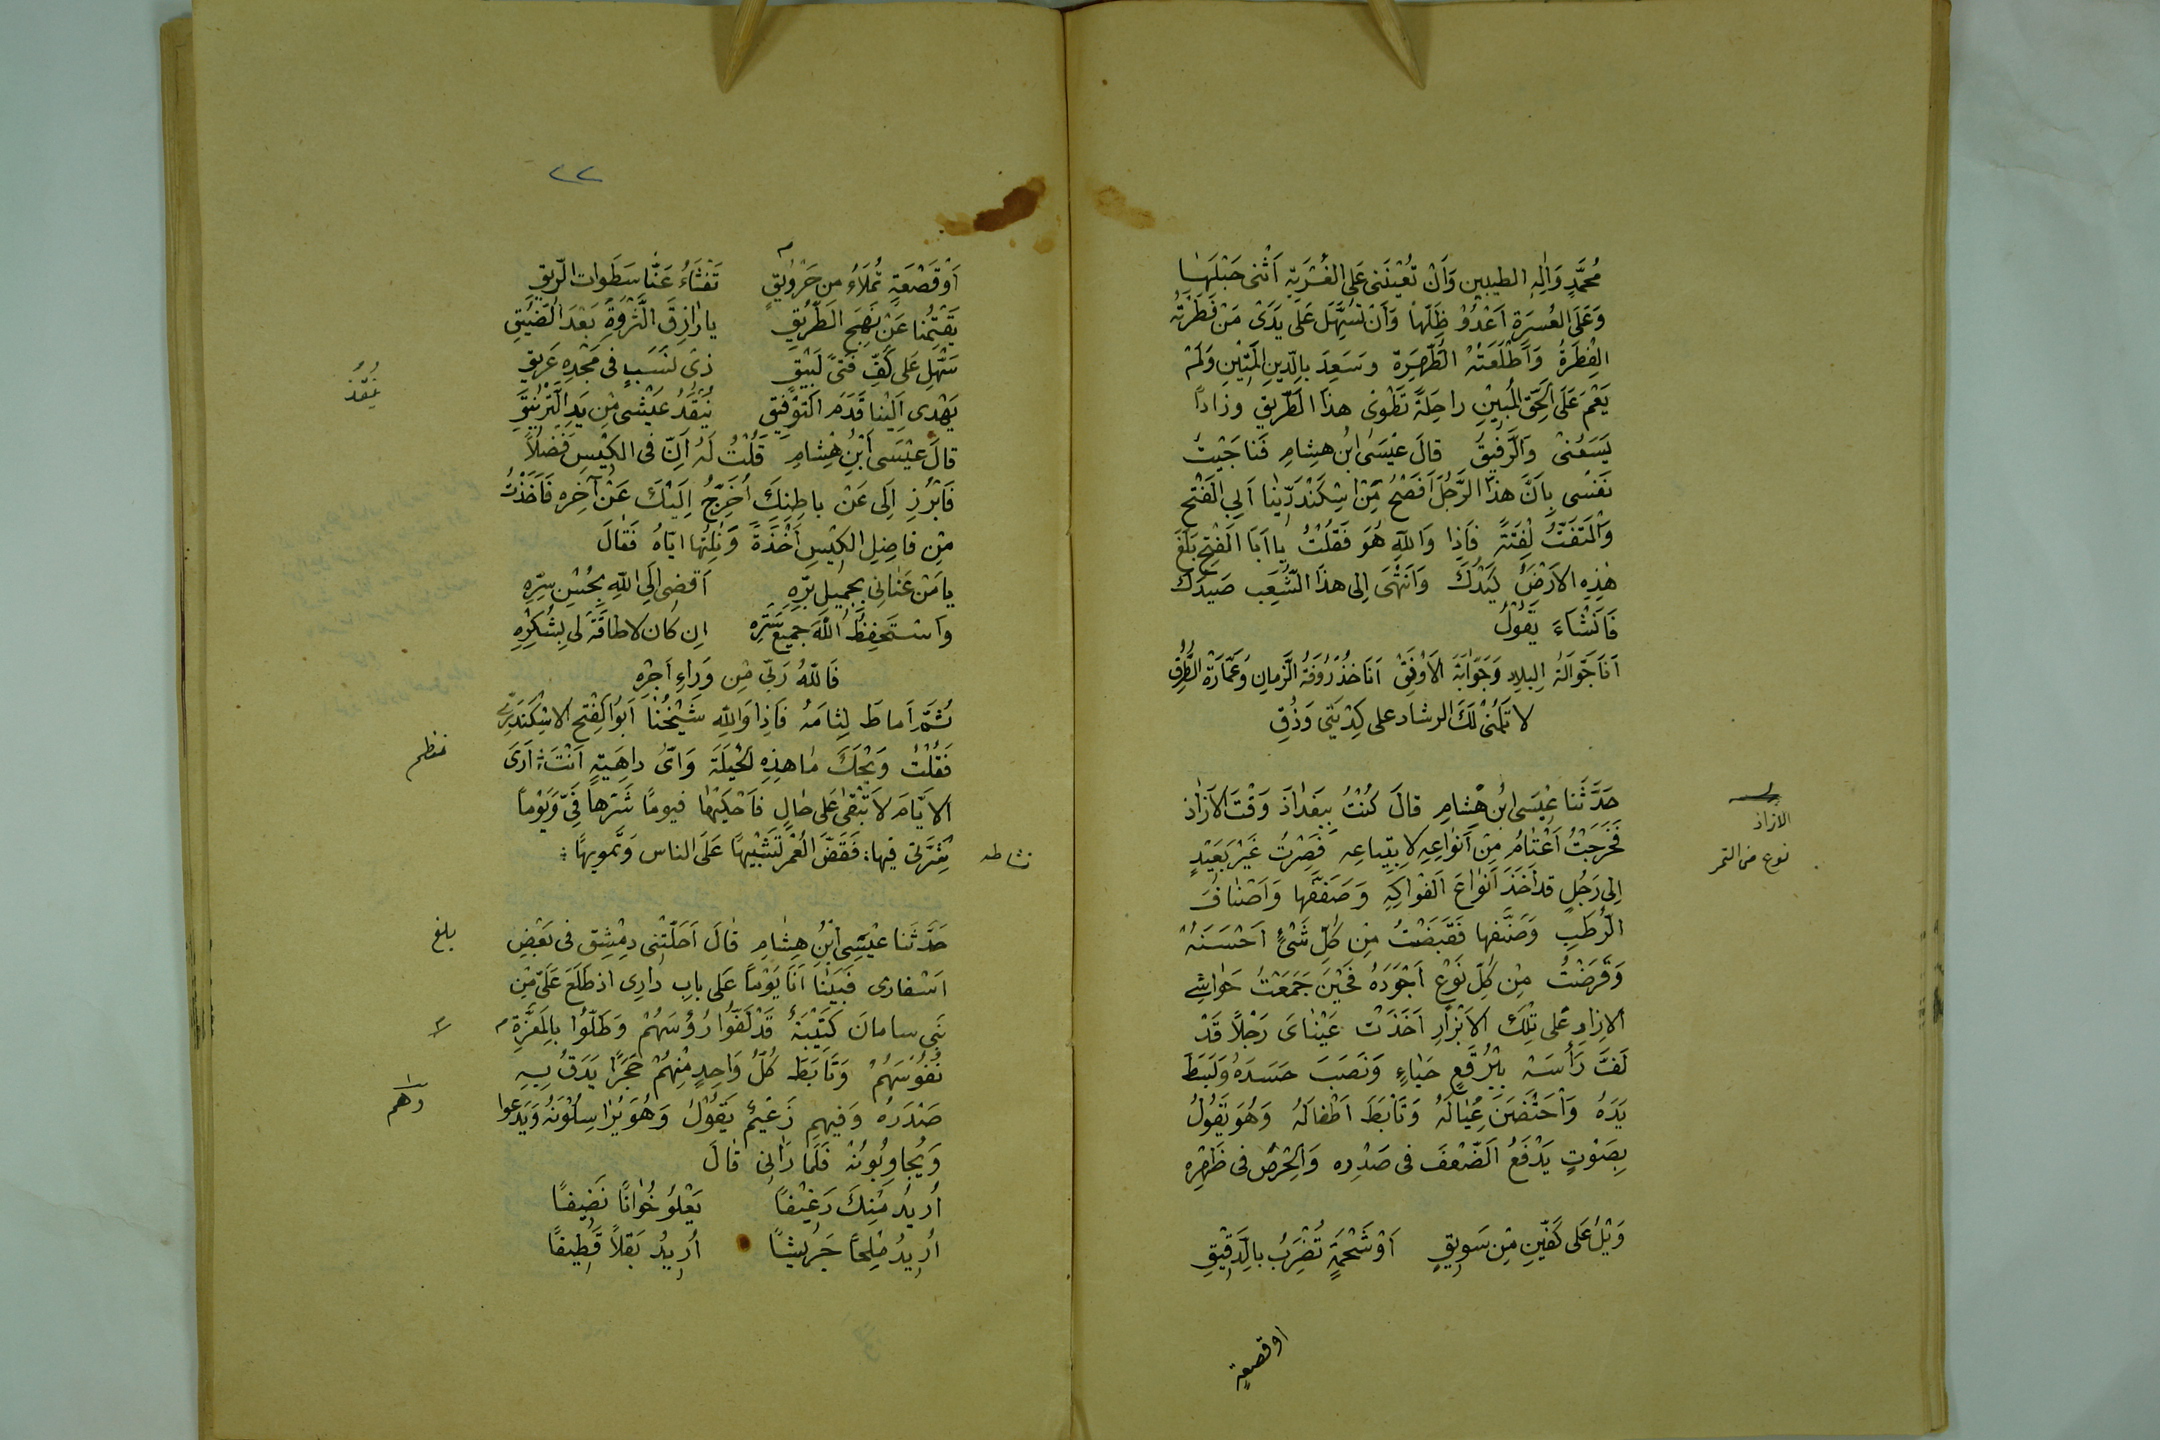 مُحَمَّدٍ وَآلِهِ الطيبين وَأَنْ تُعْيِنَنى عَلَى الغُرْبَةِ اَثْنى حَبْلَهَا
وَعَلَى العُسرَةِ اَعْدُوْ ظِلَّهاْ وَأَنْ تُسَهِّلَ عَلَى يَدَىْ مَنْ فَطَرَتْهُ
الفِطرَةُ وَاَطْلَعَتْهُ الطُّهْرَةِ وسَعِدَ بالِّدينِ المَتِيْنِ وَلَمْ
يَعْمَ عَلَى الحَقِّ المُبِيْنِ راحِلَةً تَطْوىْ هذَا الطَّرِيقِ وزاداً
يَسَعُنىْ وَالرَّفِيقُ قالَ عْيسَى ابْن هِشامِ فَناجَيْتُ
نَفْسى بِاَنَّ هذَا الرَّجُلَ أَفْصَحُ مِّنْ اِسْكَنْدَرِّينا اَبِي الفَتْحِ
وَالْتَفَتُّ لِفْتَةً فَاِذا وَاللهِ هُوَ فَقُلْتُ يا اَبَا الفَتْحِ بَلَغَ
هٰذِهِ الارَضُ كَيْدُكَ وَانتَهَى اِلى هذَا الشِّعْبِ صَيدُكَ
فَانَشْاءَ يَقُولُ
اَنَا جَوّالَةُ البِلادِ وَجَوّابَةُ الاُفُقِ اَنَا خُذْرُوفَةُ الزَّمانِ وَعَمّارَةُ الطُّرُقِ
لا تَلُمْنىْ لَكَ الرشاد على كِدْيَتِي وَذُقِ
حَدَّثَنا عِيْسَى ابْن هِشامِ قالَ كُنْتُ بِبَغْداذَ وَقْتَ الاَزَاذِ
فَخَرَجْتُ أَعْتامُ مِنْ أَنْواعِهِ لاِبتِياعِهِ فَصِرْتُ غَيْرَ بَعَيْدٍ
اِلى رَجُلٍ قد أَخَذَ أَنْواعَ الفَواكِهِ وَصَفَّفَها وَاَصْنافَ
الرُّطَبِ وَصَنَّفها فَقَبَضْتُ مِن كُلِّ شَىْءٍ اَحْسَنَهُ
وَقَرَضْتُ مِنْ كُلِّ نَوْعٍ اَجْوَدَهُ فَحْينَ جَمَعَتُ حَواشِى
الاِزارِ عَلى تِلكَ الاَبْزارِ اَخَذَتْ عَيْناىَ رَجُلاً قَدْ
لَفَّ رَأسَهُ بِبُرْقَعٍ حَياءٍ وَنَصَبَ جَسَدَهُ وَبَسَطَ
يَدَهُ وَاحْتَضَنَ عِيَالَهُ وَتَأَبَّطَ اَطْفالَهُ وَهُوَ يَقُولُ
بِصَوْتٍ يَدْفَعُ الضَّعْفَ فى صَدْرِهِ وَالحِرْضَ فى ظَهْرِهِ
وَيْلٌ عَلى كَفّينِ مِن سَويقٍ اَوْ شَحْمَةٍ تُضْرَبُ بالدَّقِيقِ
اوقصعة
الازاذ
نوع من التمر
٢٢
اَوْ قَصْعَةٍ تُملَاءُ مِن خَرْدِيقٍ تَفْثَاءُ عَنّا سَطَواتِ الرِّيقِ
يَقْيمُنا عَنْ نَهَجِ الطَّرِيقِ يا رازِقَ الثَّرْوَةِ بَعْدَ الضِيقِ
سَهِّل عَلى كَفِّ فَتىً لَبيقٍ ذى نَسَبٍ فى مَجْدِهِ عَريقِ
يَهْدِى اِلَيْنا قَدَمَ التَوْفيقِ يُنْقِذُ عَيْشى مِن يَدِ التَّرنِيقِ
قالَ عيْسَى ابْنُ هِشامِ قُلْتُ لَهُ اِنَّ فى الكِيْسِ فَضلاً
فَابْرُزِ اِلَى عَنْ باطِنِكَ اَخَرُجُ اِلَيْكَ عَنْ آخِرِه فَاَخَذْتُ
مِن فاضِلِ الكِيْسِ أَخْذَةً وَنِلْتُها اِيّاهُ فَقالَ
يا مَنْ عَنانِي بِجمِيلِ بِرِّهِ اَقضى اِلَى اللهِ بِحُسْنِ سِرِّهِ
وَاستَحفِظُ اللهَ جميعَ سَترِه اِن كانَ لا طاقَةَ لى بِشُكرِهِ
فَاللهُ رَبّى مِن وَراءِ اَجْرِهِ
ثُمَّ اَماطَ لِثامَهُ فَاِذا وَاللهِ شَيْخُنا اَبُو الفَتحِ الاِسْكَندَرِىّ
فَقُلْتُ وَيْحَكَ ما هذِهِ الحْيلَةَ وَاَىُّ داهِيَةٍ اَنْتَ اَرَى
الاَيّامَ لا تَبْقى عَلَى حالٍ فَاَحْكيْها فيوماً شَرُّها فِىَّ وَيَوْماً
شِرَّتى فِيها: فَقَضِّ العُمْرَ تَشْبِيهًا عَلَى الناس وَتَمويهًا
حَدَّثَنا عْيسَى ابْنُ هِشامِ قالَ اَحَلَّتْنِى دِمْشِق فى بَعْضِ
اَسْفارى فَبَيْنا اَنَا يَوْماً عَلى بابِ دارِى اذ طَلَعَ عَلَىّ مِن
بَنِى سامانَ كَتيْبَةٌ قَدْ لَفّوا رُؤُسَهُمْ وَطَلّوْا بِالمَغْرَةِ
نُفُوْسَهُمْ وَتَأَبَّطَ كُلُّ وَاحِدٍ مِنْهُمْ حَجَراً يَدَقُّ بِهِ
صَدْرَهُ وَفِيهِم زَعْيمٌ يَقُوْلُ وَهُم يُراسِلُوْنَهُ وَيَدعوا
وَيُجاوِبُونَهُ فَلَمّا رَاٰنى قالَ
اُريدُ مِنكَ رَغْيفاً يَعْلوُ خُواناً نَضِيفاً
اُريدُ مِلحاً جَرِيْشاً اُرِيدُ بَقلاً قَطِيفاً
يُنقِذ
نشاطه
بلغ